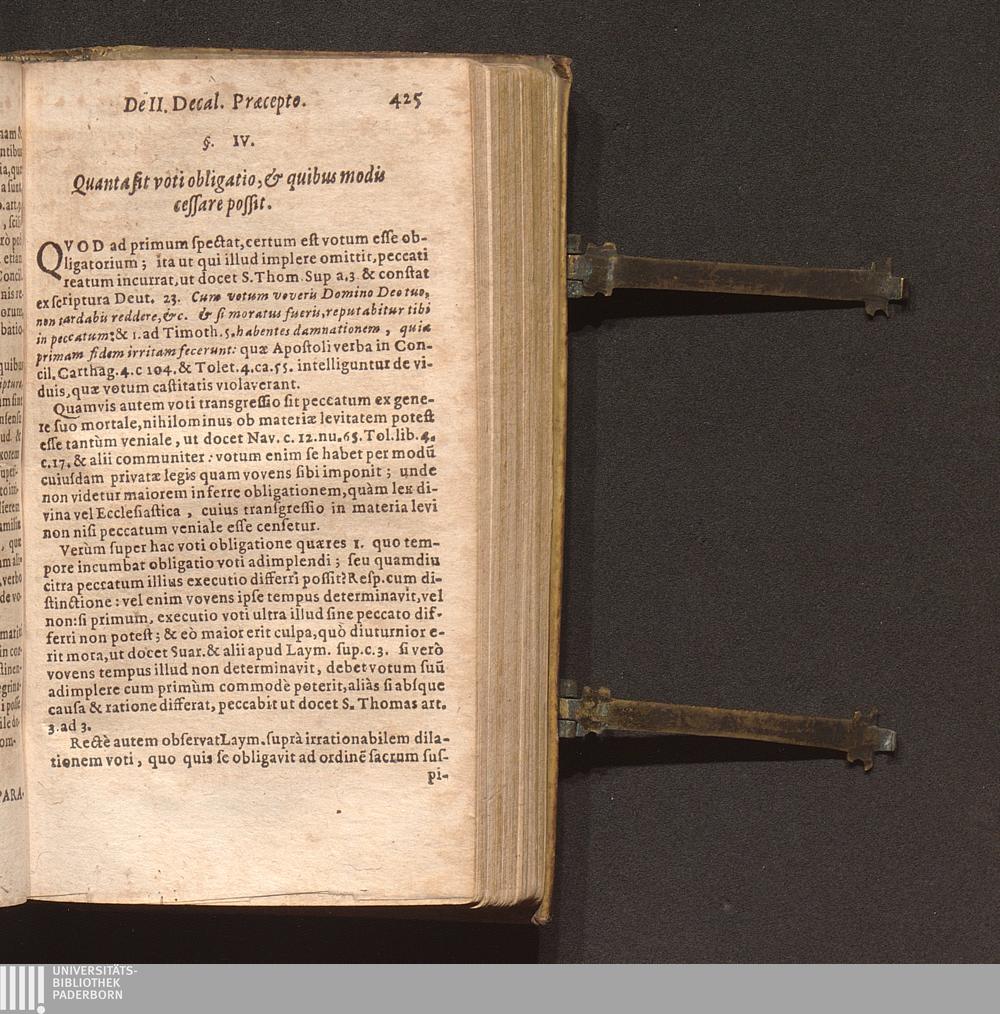 De II. Decal. Præcepto. 425
§. IV.
Quanta sit voti obligatio, & quibus modis
cessare possit.
QVOD ad primum spectat, certum est votum esse ob-
ligatorium; ita ut qui illud implere omittit, peccati
reatum incurrat, ut docet S. Thom. Sup a.3. & constat
ex scriptura Deut. 23. Cum votum voveris Domino Deo tuo,
non tardabis reddere, &c. & si moratus fueris, reputabitur tibi
in peccatum: & 1. ad Timoth. 5. habentes damnationem, quia
primam fidem irritam fecerunt: quæ Apostoli verba in Con-
cil. Carthag. 4. c 104. & Tolet. 4. ca. 55. intelliguntur de vi-
duis, quæ votum castitatis violaverant.
Quamvis autem voti transgressio sit peccatum ex gene-
re suo mortale, nihilominus ob materiæ levitatem potest
esse tantùm veniale, ut docet Nav. c. 12. nu. 65. Tol. lib. 4.
c. 17. & alii communiter: votum enim se habet per modū
cuiusdam privatæ legis quam vovens sibi imponit; unde
non videtur maiorem inferre obligationem, quàm lex di-
vina vel Ecclesiastica, cuius transgressio in materia levi
non nisi peccatum veniale esse censetur.
Verùm super hac voti obligatione quæres 1. quo tem-
pore incumbat obligatio voti adimplendi; seu quamdiu
citra peccatum illius executio differri possit? Resp. cum di-
stinctione: vel enim vovens ipse tempus determinavit, vel
non: si primum, executio voti ultra illud sine peccato dif-
ferri non potest; & eò maior erit culpa, quò diuturnior e-
rit mora, ut docet Suar. & alii apud Laym. sup. c. 3. si verò
vovens tempus illud non determinavit, debet votum suū
adimplere cum primùm commodè poterit, aliàs si absque
causa & ratione differat, peccabit ut docet S. Thomas art.
3. ad 3.
Rectè autem observat Laym. suprà irrationabilem dila-
tionem voti, quo quis se obligavit ad ordinē sacrum sus-
pi-
PARA-
UNIVERSITÄTS-
BIBLIOTHEK
PADERBORN